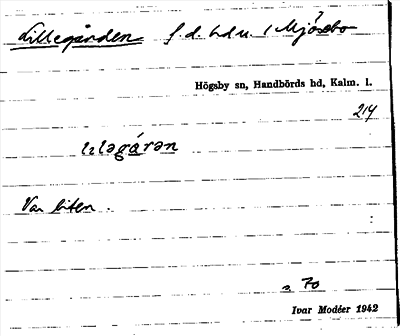 Lillegården f. d. hdu. i Mjösebo
Högsby sn, Handbörds hd, Kalm. l.
214
Var liten.
s. 70
Ivar Modéer 1942